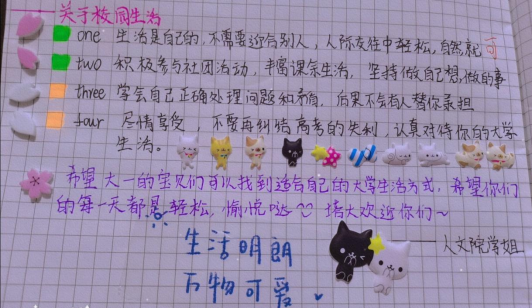 关于校园生活
one 生活是自己的，不需要迎合别人，人际交往中轻松，自然就可
two 积极参与社团活动，丰富课余生活，坚持做自己想做的事
three 学会自己正确处理问题和矛盾，后果不会有人替你承担
four 尽情享受，不要再纠结高考的失利，认真对待你的大学
生活。
希望大一的宝贝们可以找到适合自己的大学生活方式，希望你们
的每一天都是轻松，愉悦哒 培大欢迎你们～
——人文院学姐
生活明朗
万物可爱